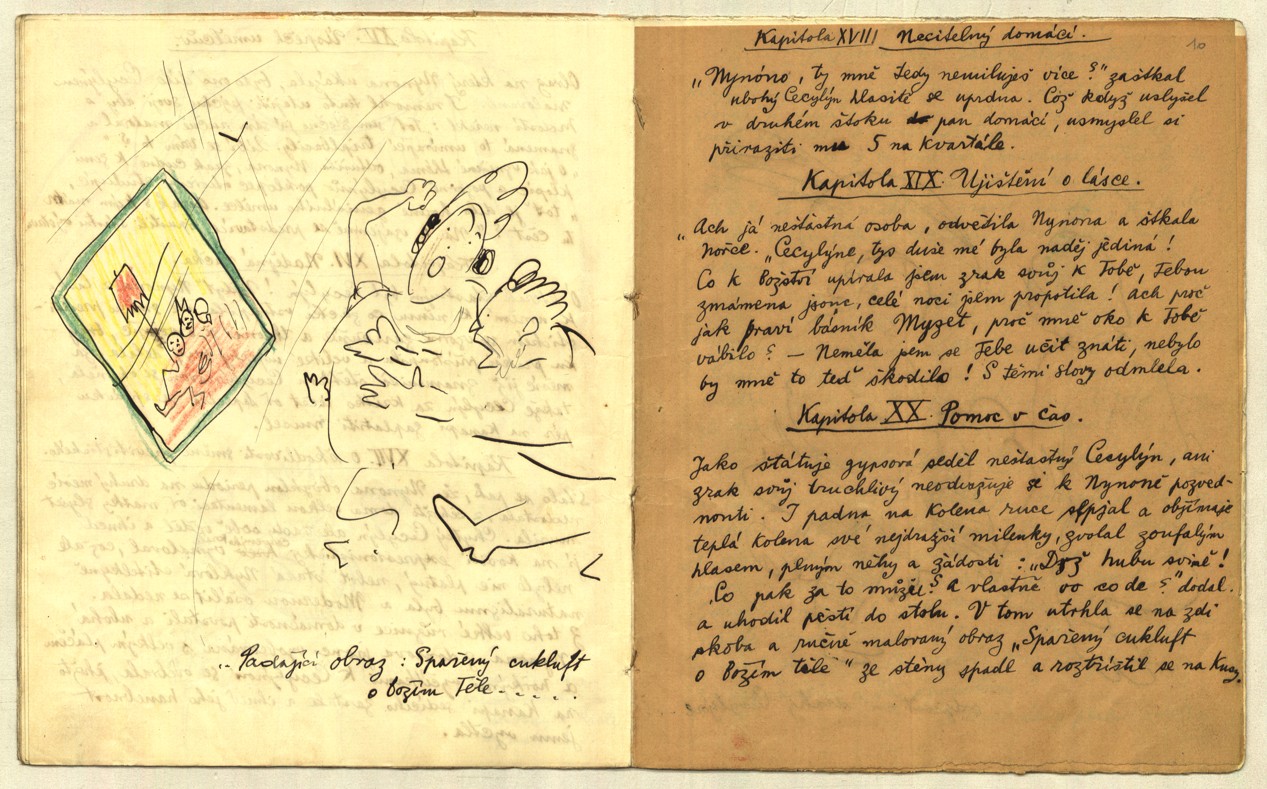 .. Padající obraz : Spařený cukluft
o Božím Těle. . . . .
10
Kapitola XVIII Necitelný domácí.
„Nynóno, ty mně tedy nemiluješ více?" zaštkal
ubohý Cecylýn hlasitě se uprdna. Což když uslyšel
v druhém štoku pan domácí, usmyslel si
přiraziti mu 5 na kvartále.
Kapitola XIX. Ujištění o lásce.
„Ach já neštastná osoba, odvětila Nynona a štkala
hořce. „Cecylýne, tys duše mé byla naděj jediná!
Co k božství upírala jsem zrak svůj k Tobě, Tebou
zmámena jsouc, celé noci jsem propotila! Ach proč
jak praví básník Myzet, proč mně oko k Tobě
vábilo? — Neměla jsem se Tebe učit znáti, nebylo
by mně to teď škodilo! S těmi slovy odmlela.
Kapitola XX. Pomoc v čas.
Jako štátuje gypsová seděl neštastný Cecylýn, ani
zrak svůj truchlivý neodvažuje se k Nynoně pozved-
nouti. I padna na kolena ruce spjal a objímaje
teplá kolena své nejdražší milenky, zvolal zoufalým
hlasem, plným něhy a žádosti : „Drž hubu svině!
Co pak za to můžu? A vlastně oo co de?" dodal
a uhodil pěstí do stolu. V tom utrhla se na zdi
skoba a ručně malovaný obraz „Spařený cukluft
o Božím těle" ze stěny spadl a roztříštil se na kusy.